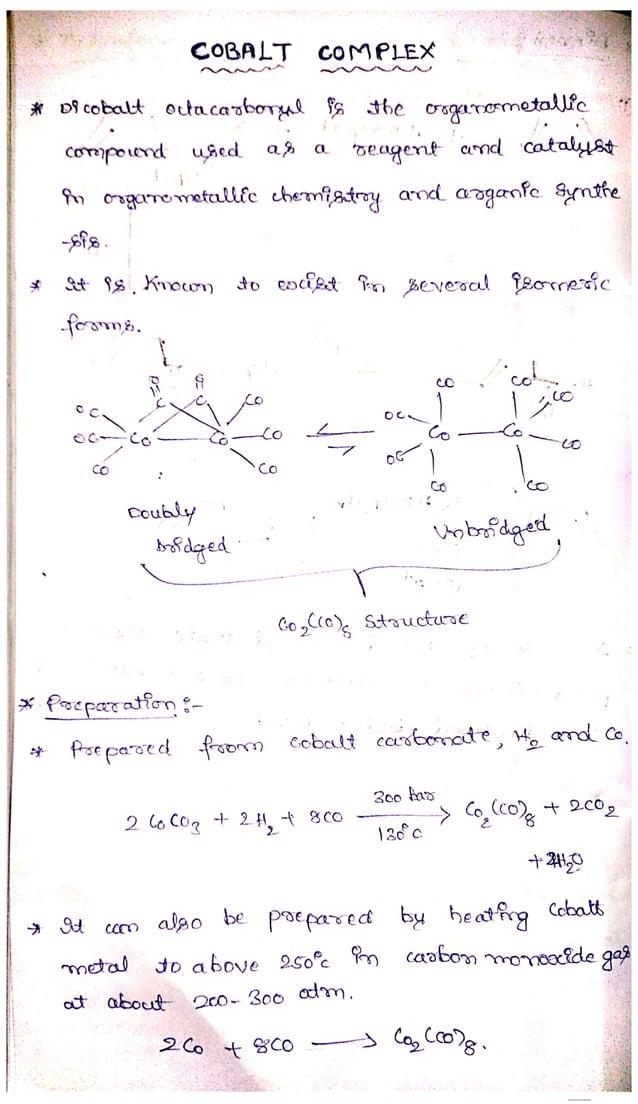 COBALT COMPLEX
* Dicobalt octacarbonyl is the organometallic
compound used as a reagent and catalyst
in organometallic chemistry and organic synthe
-sis.
* It is known to exist in several isomeric
forms.
O O CO CO
OC C C CO CO
OC Co Co CO ⇌ OC Co Co CO
CO CO OC CO CO
Doubly
bridged
Unbridged
Co2(CO)8 structure
* Preparation :-
* Prepared from cobalt carbonate, H2 and CO.
2 CoCO3 + 2H2 + 8CO 300 bar → 130°C Co2(CO)8 + 2CO2
+ 2H2O
→ It can also be prepared by heating cobalt
metal to above 250°C in carbon monoxide gas
at about 200-300 atm.
2Co + 8CO → Co2(CO)8.